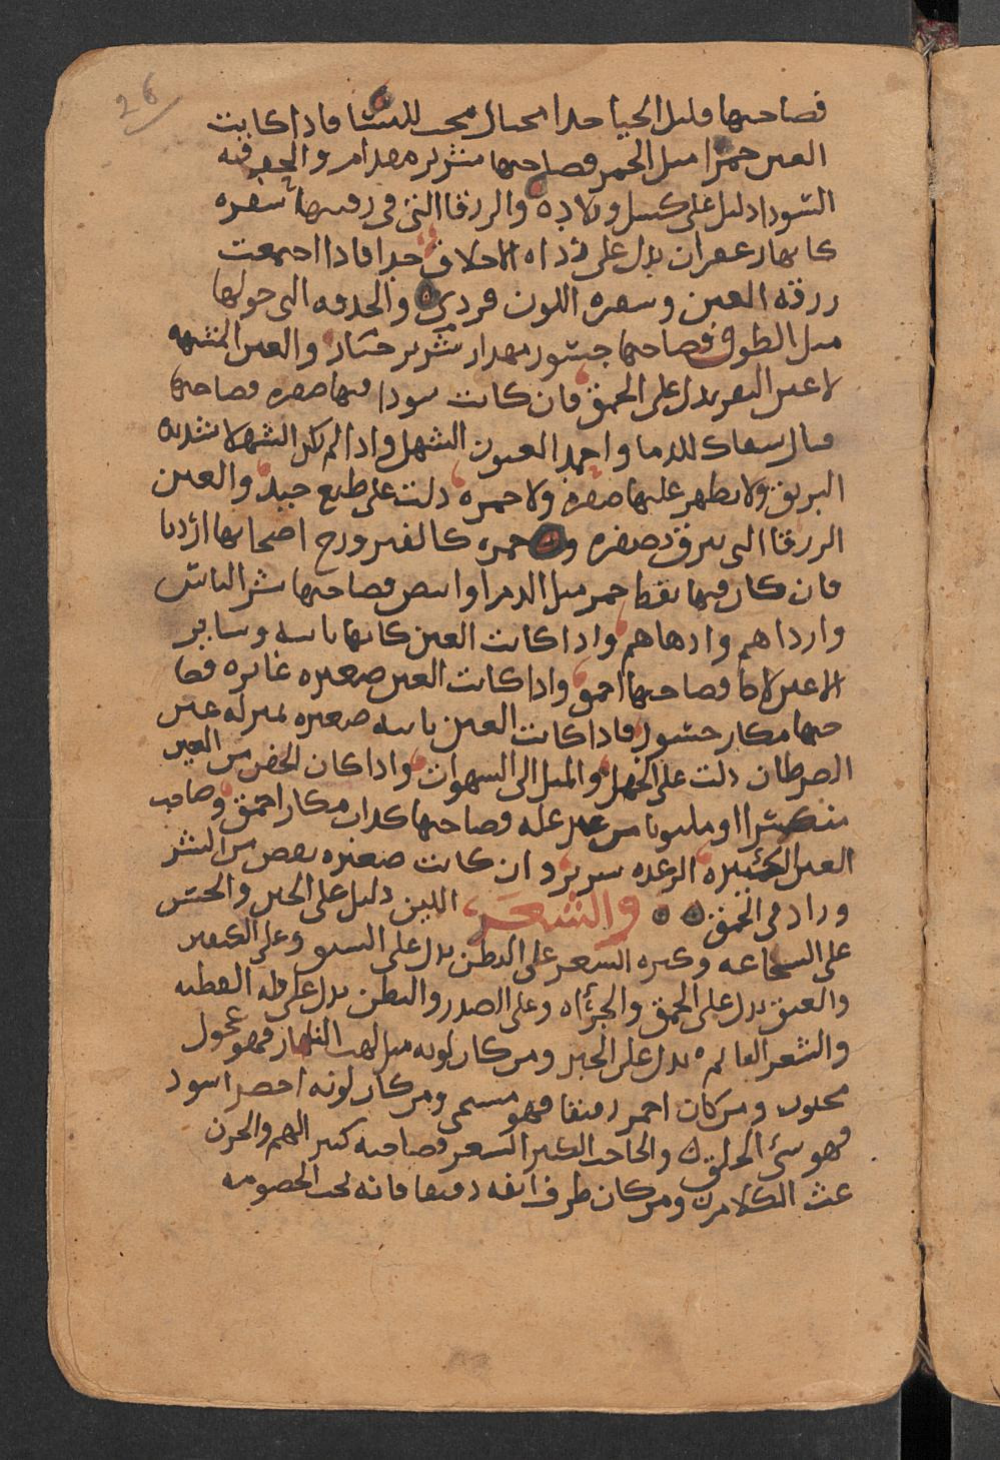 26
فصاحبها قليل الحيا جدا محتال محب للنسا فاذا كانت
العين حمرا مثل الجمر فصاحبها شرير مهدار والحدقه
السودا دليل على كسل وبلاده والزرقا التي في زرقتها سفره
كانها زعفران يدل على رداه الاخلاق جدا فاذا اجتمعت
زرقه العين وسفره اللون فردي والحدقه التي حولها
مثل الطوق فصاحبها جسور مهدار شرير والعين المشبهه
لاعين البقر يدل على الحمق فان كانت سودا فيها صفره فصاحبها
قتال سفاك للدما واحمد العيون الشهل واذا لم تكن الشهلا شديده
البريق ولا يظهر عليها صفره ولا حمره دلت على طبع جيد والعين
الزرقا التي تبرق بصفره حمره كالفيروزج اصحابها ارديا
فان كان فيها نقط حمر مثل الدم او ابيض فصاحبها شر الناس
وارداهم وادهاهم واذا كانت العين كانها ناتيه وساير
الاعين لاطا فصاحبها احمق واذا كانت العين صغيره غايره فصا
حبها مكار حسود فاذا كانت العين ناتيه صغيره بمنزله عين
الصرطان دلت على الجهل والميل الى الشهوات واذا كان الجفن من العين
منكسرا او ملتويا من غير عله فصاحبها كداب مكار احمق وصاحب
العين الكثيره الرعده شرير وان كانت صغيره نقص من الشر
وزاد في الحمق والشعر اللين دليل على الجبن والخشن
على الشجاعه وكثره الشعر على البطن يدل على الشبق وعلى الكتفين
والعنق يدل على الحمق والجرئاه وعلى الصدر والبطن يدل على قله الفطنه
والشعر القايم يدل على الجبن ومن كان لونه مثل لهب النار فهو عجول
مجنون ومن كان احمر رقيقا فهو مستحي ومن كان لونه اخضر اسود
فهو سئ الخلق والحاجب الكثير الشعر فصاحبه كثير الهم والحزن
غث الكلام ومن كان طرف انفه دقيقا فانه يحب الخصومه